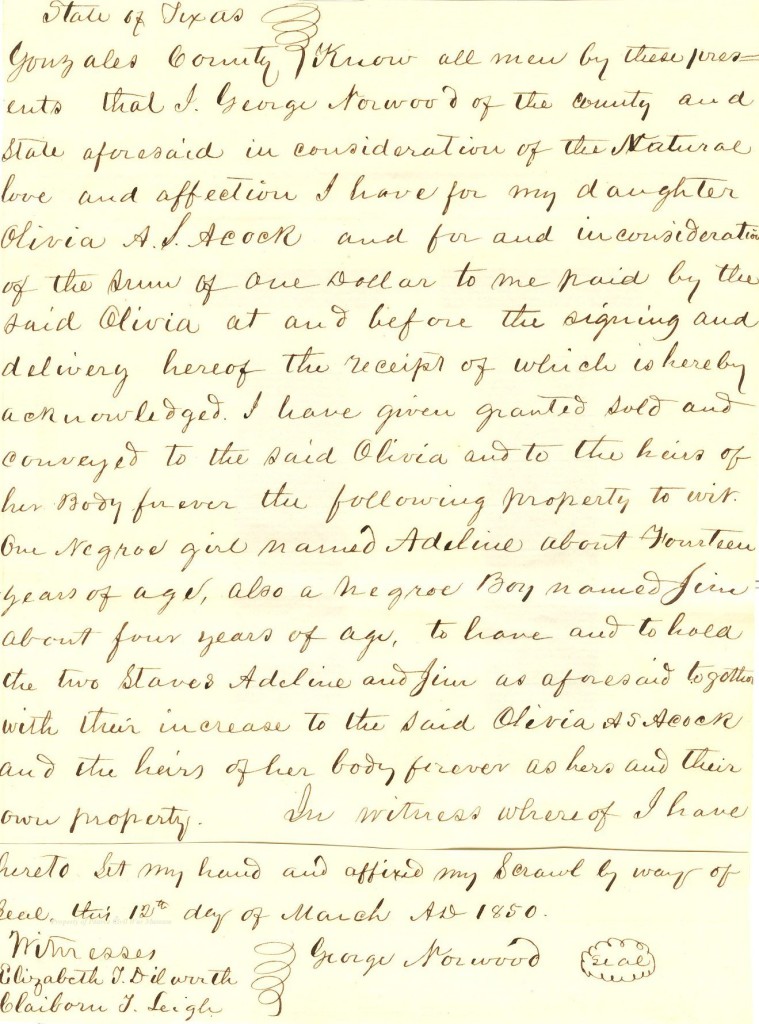 State of Texas
Gonzales County Know all men by these pres=
ents that I. George Norwood of the county and
State aforesaid in consideration of the Natural
love and affection I have for my daughter
Olivia A. S. Acock and for and in consideration
of the Sum of One Dollar to me paid by the
said Olivia at and before the signing and
delivery hereof the receipt of which is hereby
acknowledged. I have given granted sold and
conveyed to the said Olivia and to the heirs of
her Body forever the following property to wit.
One Negroe girl named Adeline about Fourteen
years of age, also a Negroe Boy named Jim
about four years of age, to have and to hold
the two Slaves Adeline and Jim as aforesaid together
with their increase to the said Olivia A S Acock
and the heirs of her body forever as hers and their
own property. In witness whereof I have
hereto Set my hand and affixed my Scrawl by way of
Seal, this 12th day of March AD 1850.
Witnesses George Norwood seal
Elizabeth T. Dilworth
Claiborn T. Leigh